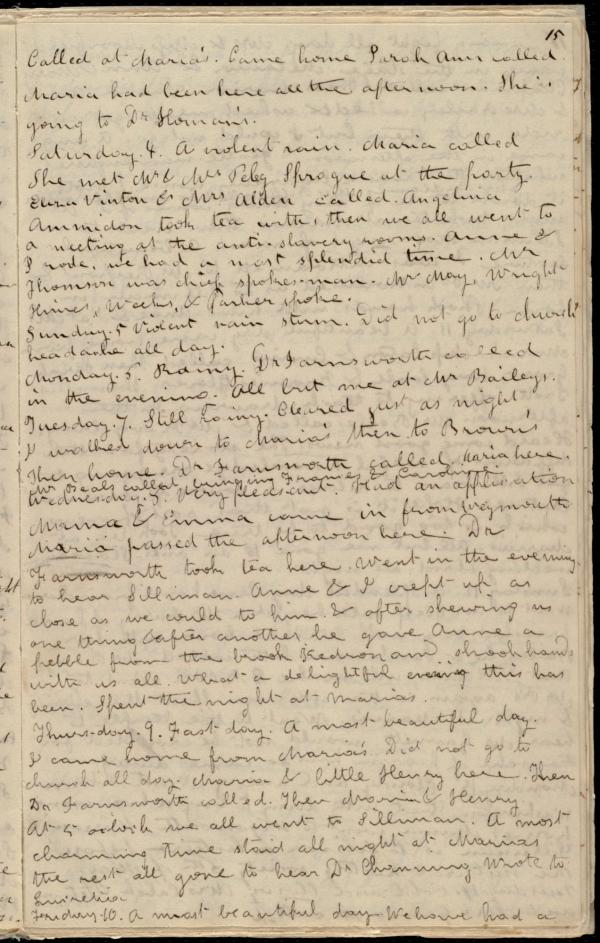 15
Called at Maria's. Came home Sarah Ann called
Maria had been here all the afternoon. She is
going to Dr Homan's.
Saturday. 4. A violent rain. Maria called
She met Mr & Mrs Peleg Sprague at the party.
Eliza Vinton & Mrs Alden called. Angelina
Ammidon took tea with, then we all went to
a meeting at the anti-slavery rooms. Anne &
I rode, we had a most splendid time. Mr
Thomson was chief spokes-man. Mr May, Wright
Himes, Weeks, & Parker spoke.
Sunday. 5 Violent rain storm. Did not go to church
headache all day.
Monday. 6. Rainy. Dr Farnsworth called
in the evening. All but me at Mr Baileys.
Tuesday 7. Still rainy. Cleared just as night
I walked down to Maria's, then to Brown's
then home. Dr Farnsworth called, Maria here.
Mr Beals called, bringing Frances & Caroline
Wednesday. 8. Very pleasant. Had an application
Mama & Emma came in from Weymouth
Maria passed the afternoon here. Dr
Farnsworth took tea here. Went in the evening
to hear Silliman. Anne & I crept up as
close as we could to him. & after shewing us
one thing after another he gave Anne a
pebble from the brook Kedron and shook hands
with us all. What a delightful evening this has
been. Spent the night at Maria's.
Thursday. 9. Fast day. A most beautiful day.
I came home from Maria's. Did not go to
church all day. Maria & little Henry here. Then
Dr Farnsworth called. Then Maria & Henry
At 5 oclock we all went to Silliman. A most
charming time staid all night at Marias
the rest all gone to hear Dr Channing Wrote to
Lucretia
Friday 10. A most beautiful day We have had a